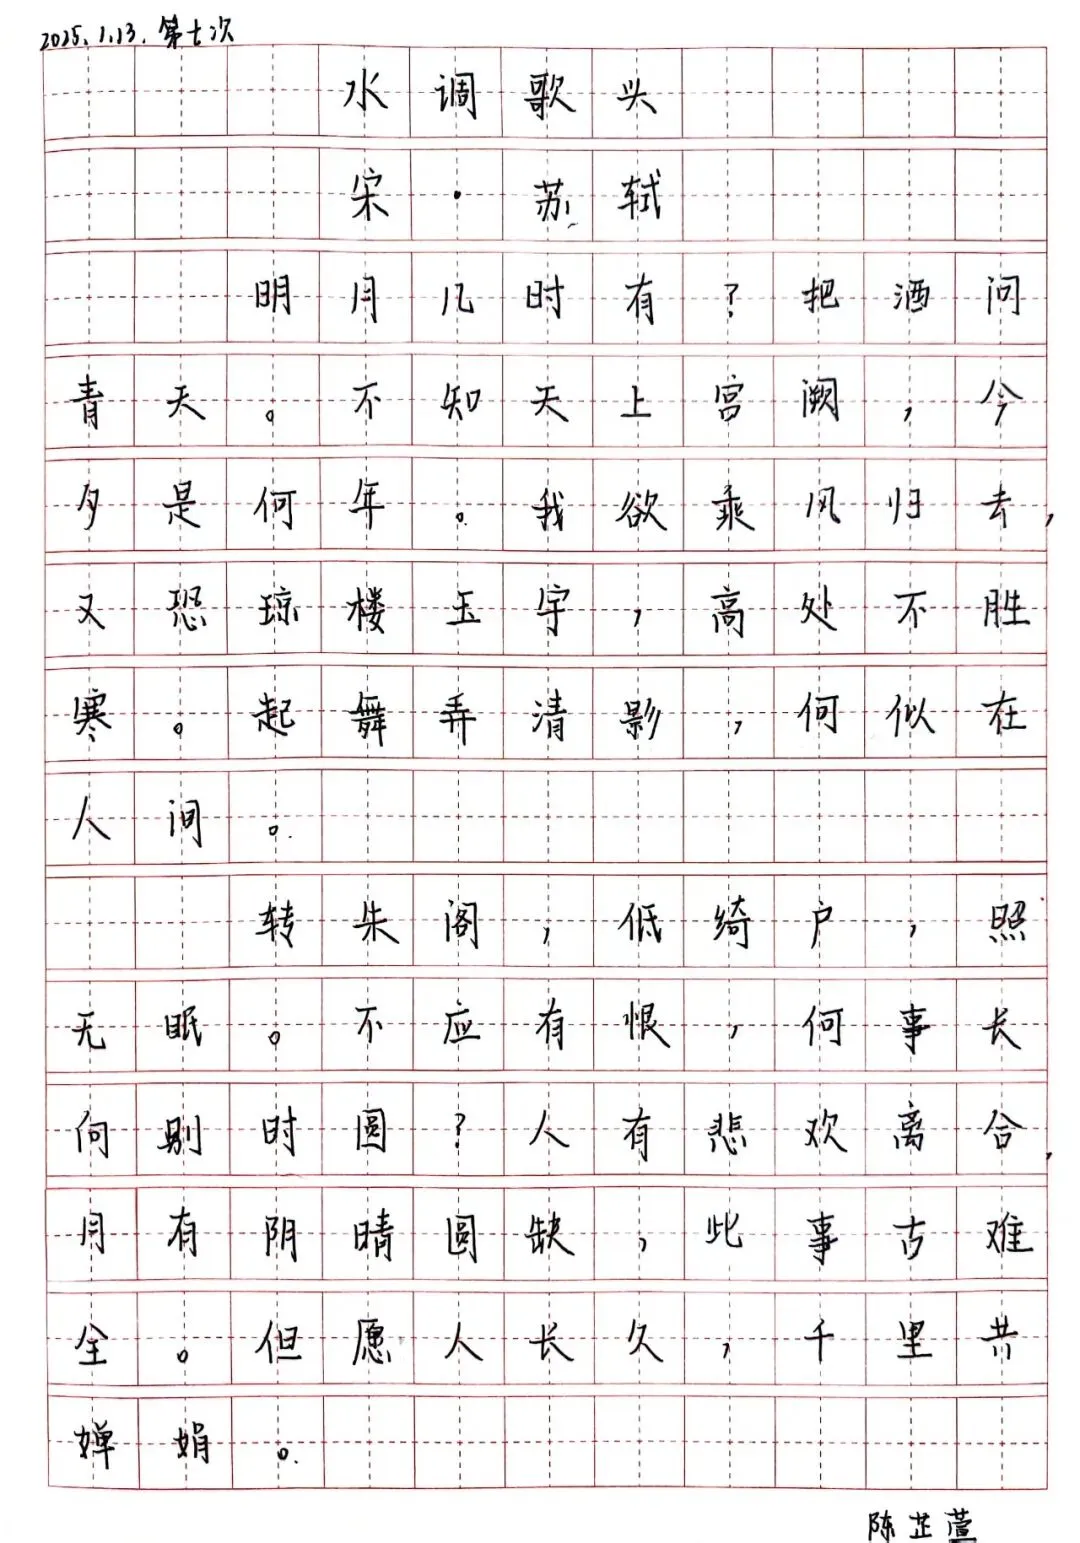 2025.1.13.第七次
水调歌头
宋·苏轼
明月几时有？把酒问
青天。不知天上宫阙，今
夕是何年。我欲乘风归去，
又恐琼楼玉宇，高处不胜
寒。起舞弄清影，何似在
人间。
转朱阁，低绮户，照
无眠。不应有恨，何事长
向别时圆？人有悲欢离合，
月有阴晴圆缺，此事古难
全。但愿人长久，千里共
婵娟。
陈芷萱